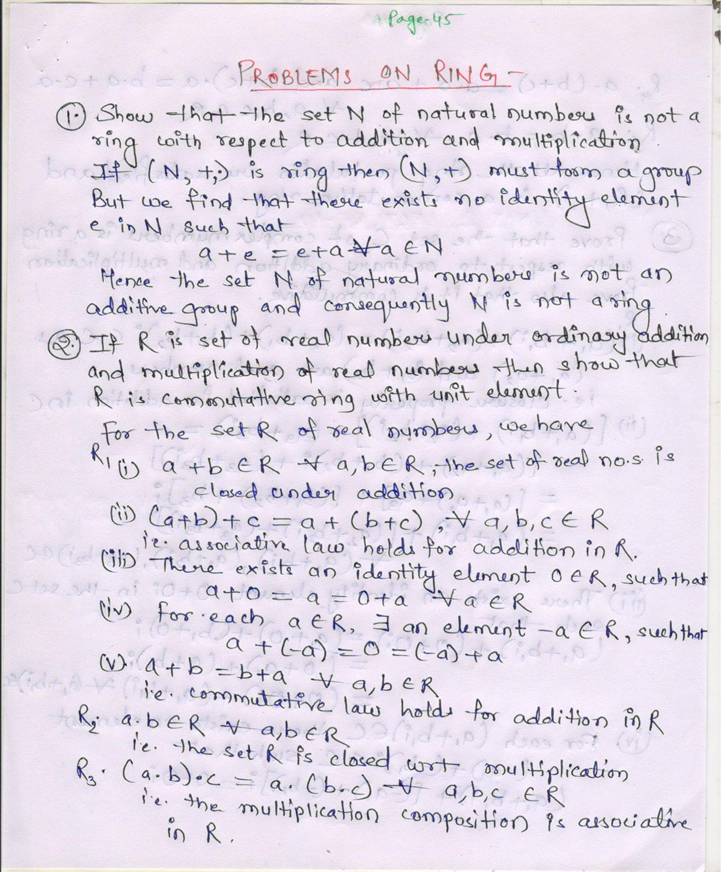 Page-45
PROBLEMS ON RING -
1. Show that the set N of natural numbers is not a
ring with respect to addition and multiplication.
If (N, +,·) is ring then (N,+) must form a group
But we find that there exists no identity element
e in N such that
a + e = e + a ∀ a ∈ N
Hence the set N of natural numbers is not an
additive group and consequently N is not a ring.
2. If R is set of real numbers under ordinary addition
and multiplication of real numbers then show that
R is commutative ring with unit element.
For the set R of real numbers, we have
R1 (i) a + b ∈ R ∀ a, b ∈ R, the set of real no.s is
closed under addition
(ii) (a+b) + c = a + (b+c), ∀ a, b, c ∈ R
i.e. associative law holds for addition in R.
(iii) There exists an identity element 0 ∈ R, such that
a + 0 = a = 0 + a ∀ a ∈ R
(iv) for each a ∈ R, ∃ an element -a ∈ R, such that
a + (-a) = 0 = (-a) + a
(v) a + b = b + a ∀ a, b ∈ R
i.e. commutative law holds for addition in R
R2 a·b ∈ R ∀ a, b ∈ R
i.e. the set R is closed wrt multiplication
R3. (a·b)·c = a·(b·c) ∀ a, b, c ∈ R
i.e. the multiplication composition is associative
in R.